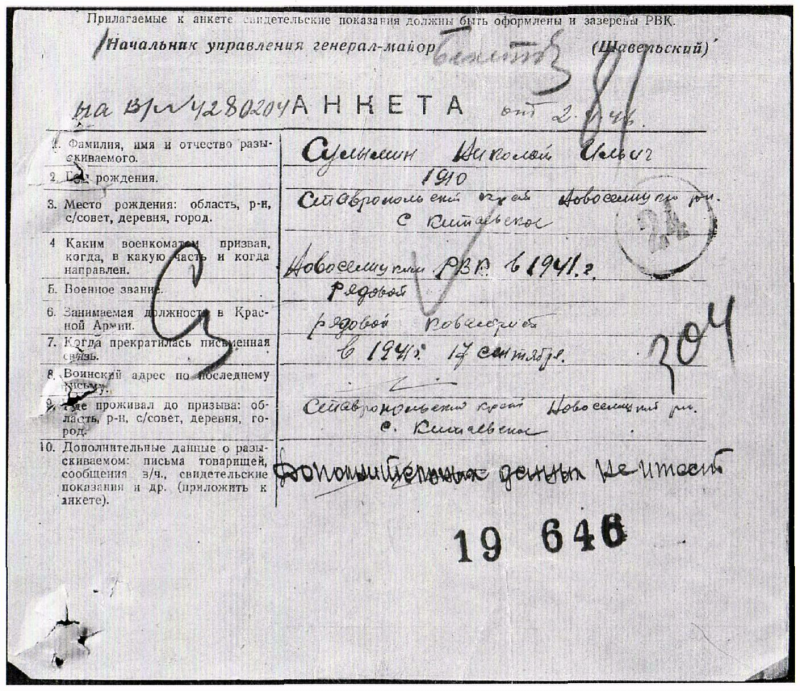 Прилагаемые к анкете свидетельские показания должны быть оформлены и заверены РВК.
Начальник управления генерал-майор (Шавельский)
81
на вх № 4280204 АНКЕТА от 2. 46.
1. Фамилия, имя и отчество разыскиваемого. Сулымин Николай Ильич
2. Год рождения. 1910
3. Место рождения: область, р-н, с/совет, деревня, город. Ставропольский край Новоселицкий рн. с Китаевское
24
4 Каким военкоматом призван, когда, в какую часть и когда направлен. Новоселицким РВК в 1941.г.
5. Военное звание. рядовой
6. Занимаемая должность в Красной Армии. рядовой
7. Когда прекратилась письменная связь. в 1941г 17 сентября.
304
8. Воинский адрес по последнему письму.
9. Где проживал до призыва: область, р-н, с/совет, деревня, город. Ставропольский край Новоселицкий рн. с. Китаевское
10. Дополнительные данные о разыскиваемом: письма товарищей, сообщения в/ч., свидетельские показания и др. (приложить к анкете). Дополнительных данных не имеет
19 646